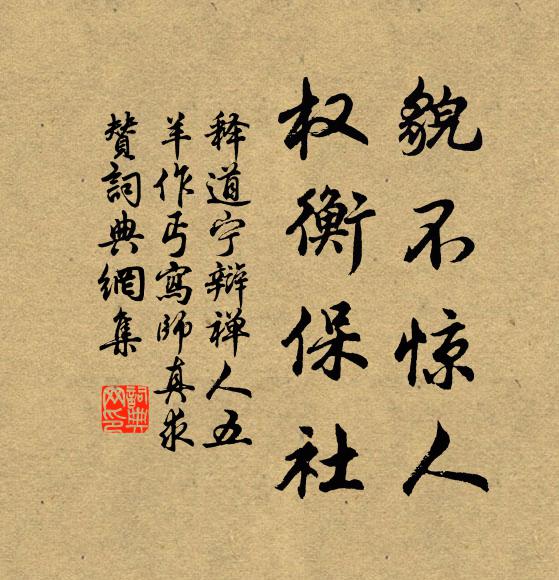 貌不惊人
权衡保社
释道宁辩禅人五
羊作丐寫师真求
贊詞典網集
詞典网印